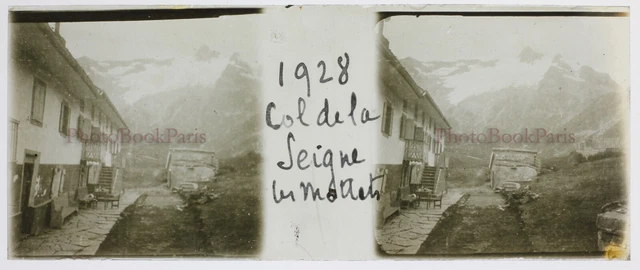 1928
Col de la
Seigne
les Mottets
PhotoBookParis
PhotoBookParis